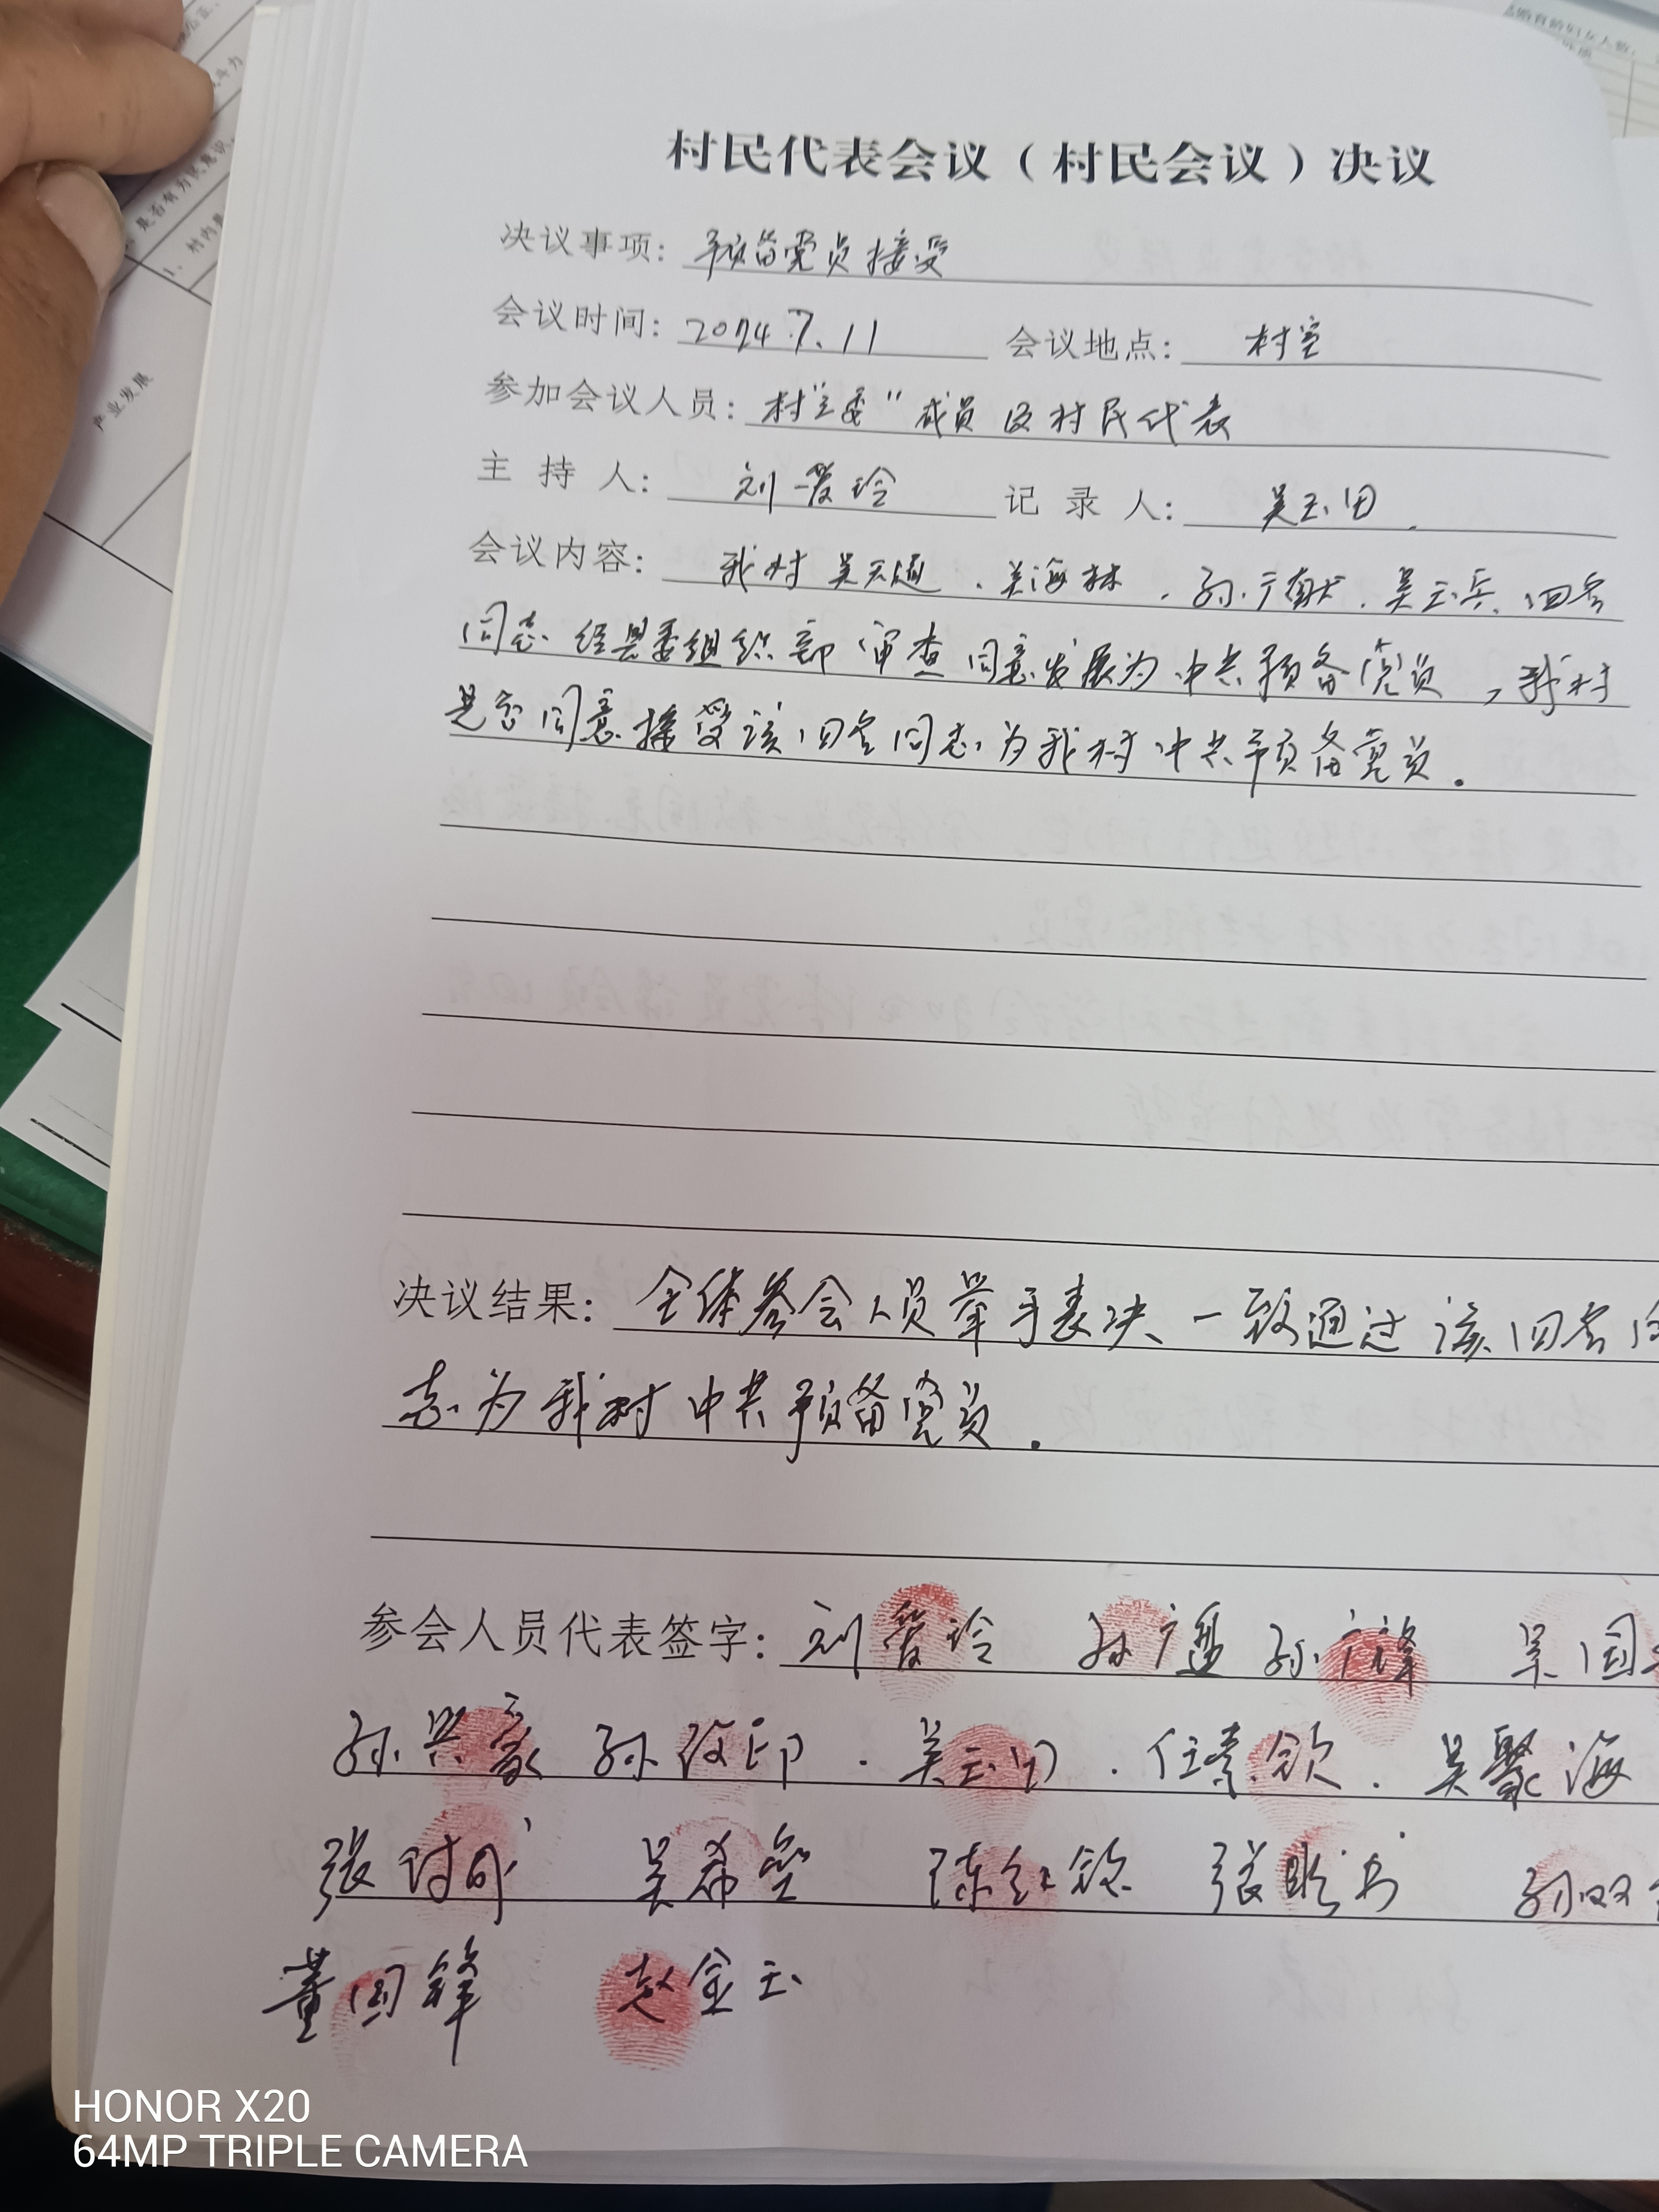 村民代表会议（村民会议）决议
决议事项：预备党员接受
会议时间：2024.7.11 会议地点：村室
参加会议人员：村"两委"成员及村民代表
主持人：刘爱玲 记录人：吴玉田
会议内容：我村吴天通、吴海林、孙广献、吴玉兵、四名
同志经县委组织部审查同意发展为中共预备党员，我村
是否同意接受该四名同志为我村中共预备党员。
决议结果：全体参会人员举手表决、一致通过该四名同
志为我村中共预备党员。
参会人员代表签字：刘爱玲 孙广 孙广锋 吴国
孙兴家 孙 印 吴玉田 任素钦 吴聚海
张 成 吴希 陈红 张 孙双
董国锋 赵金玉
产业发展
HONOR X20
64MP TRIPLE CAMERA